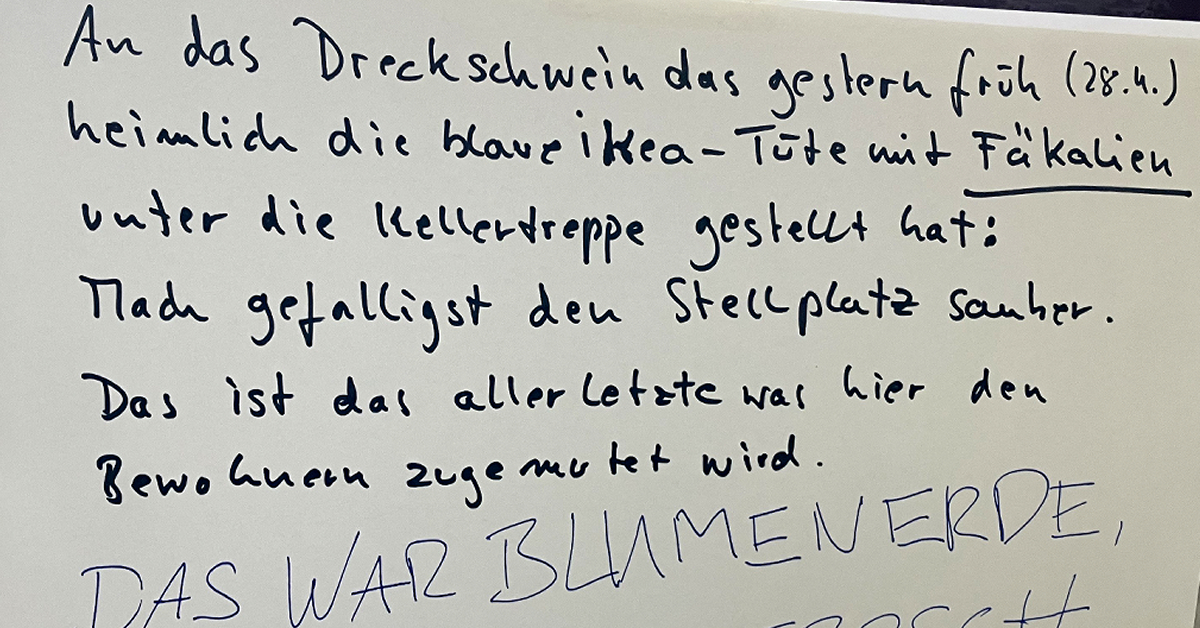 An das Dreckschwein das gestern früh (28.4.)
heimlich die blaue ikea-Tüte mit Fäkalien
unter die Kellertreppe gestellt hat:
Mach gefälligst den Stellplatz sauber.
Das ist das allerletzte was hier den
Bewohnern zugemutet wird.
DAS WAR BLUMENERDE,